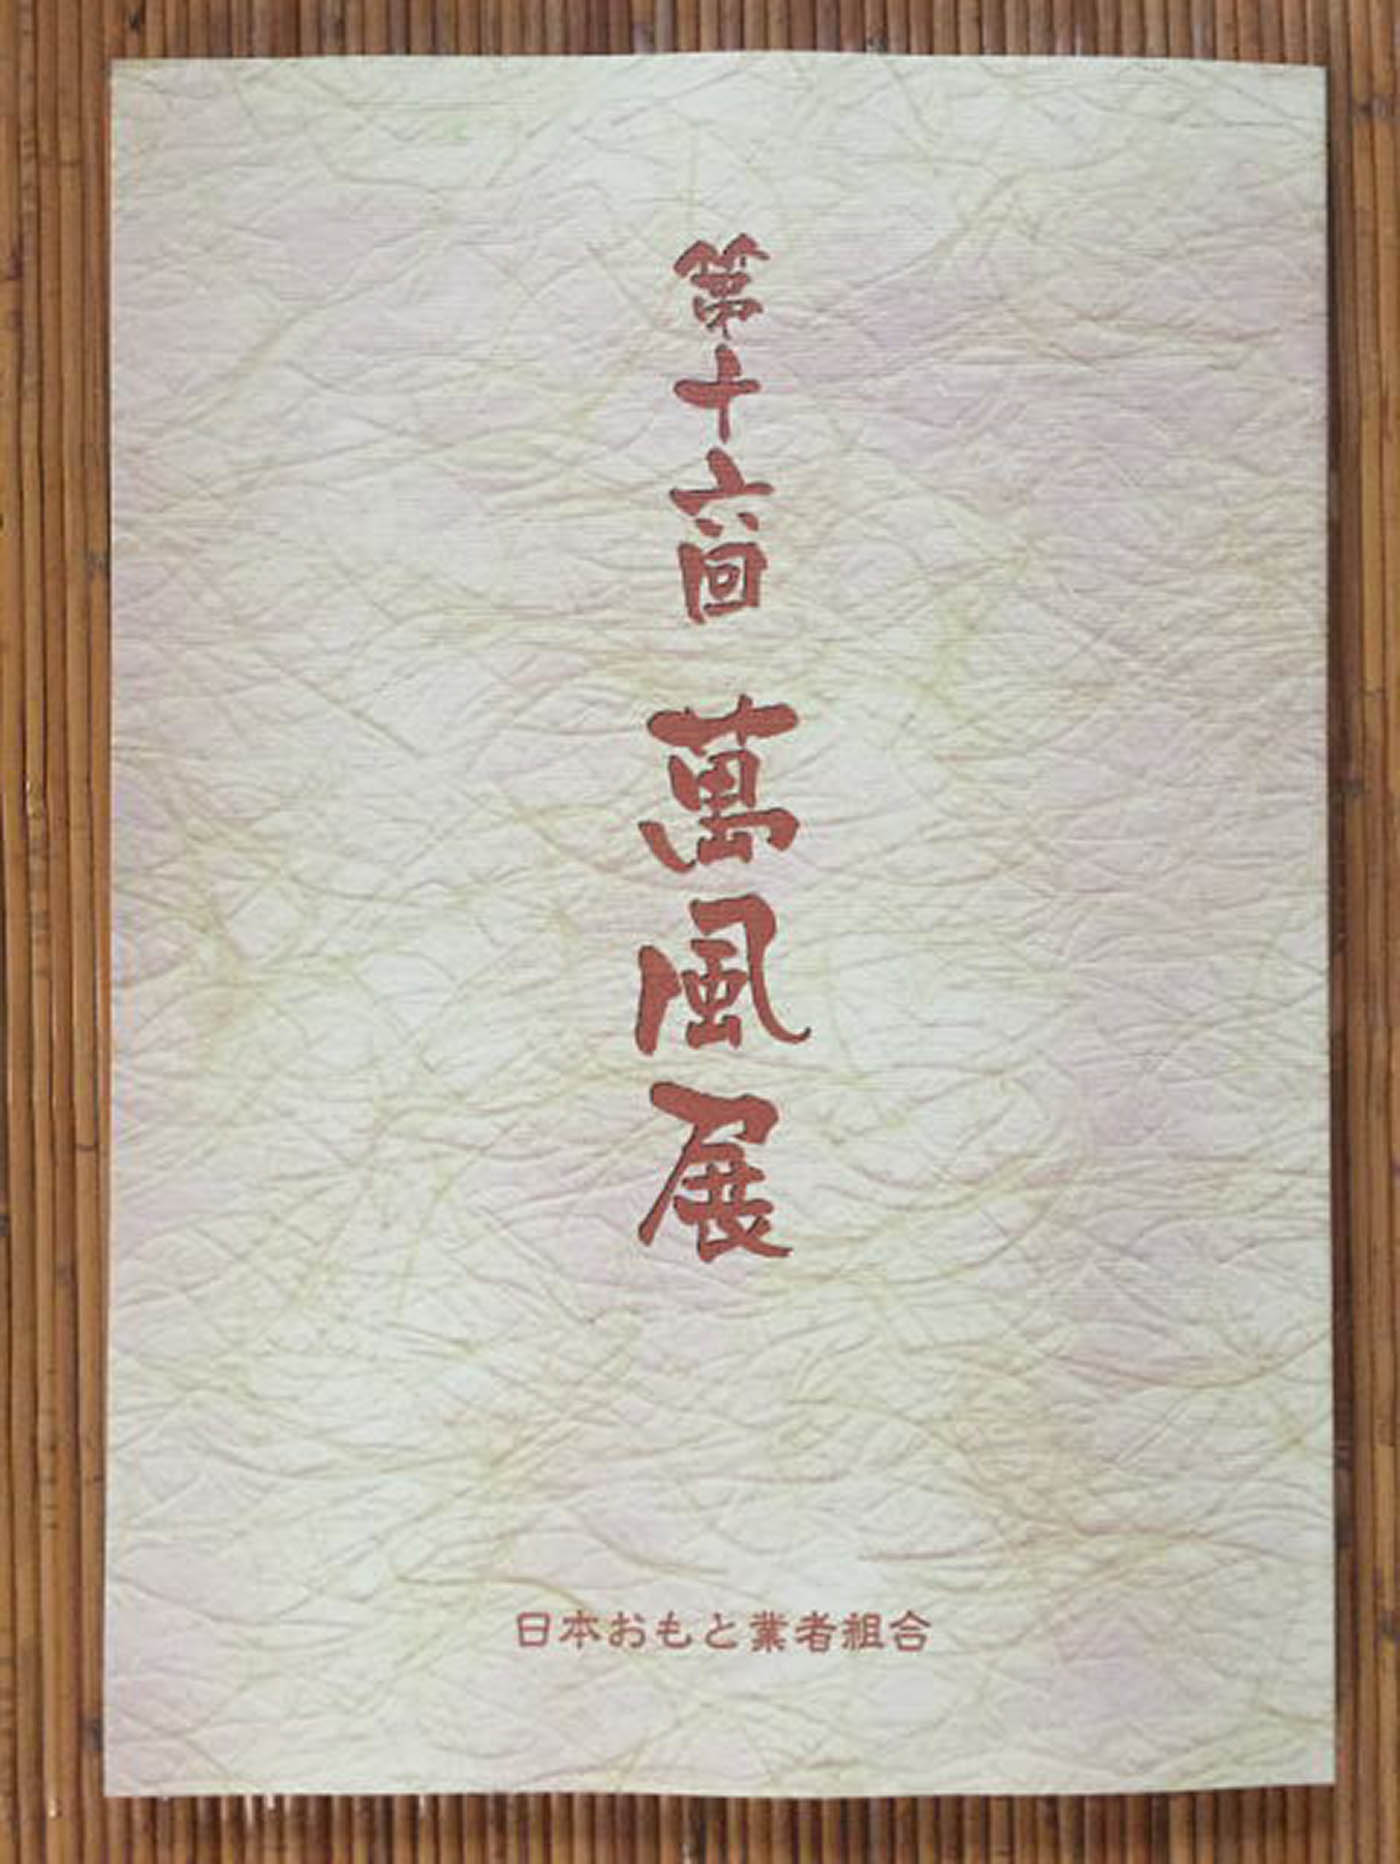 第十六回 萬風展
日本おもと業者組合